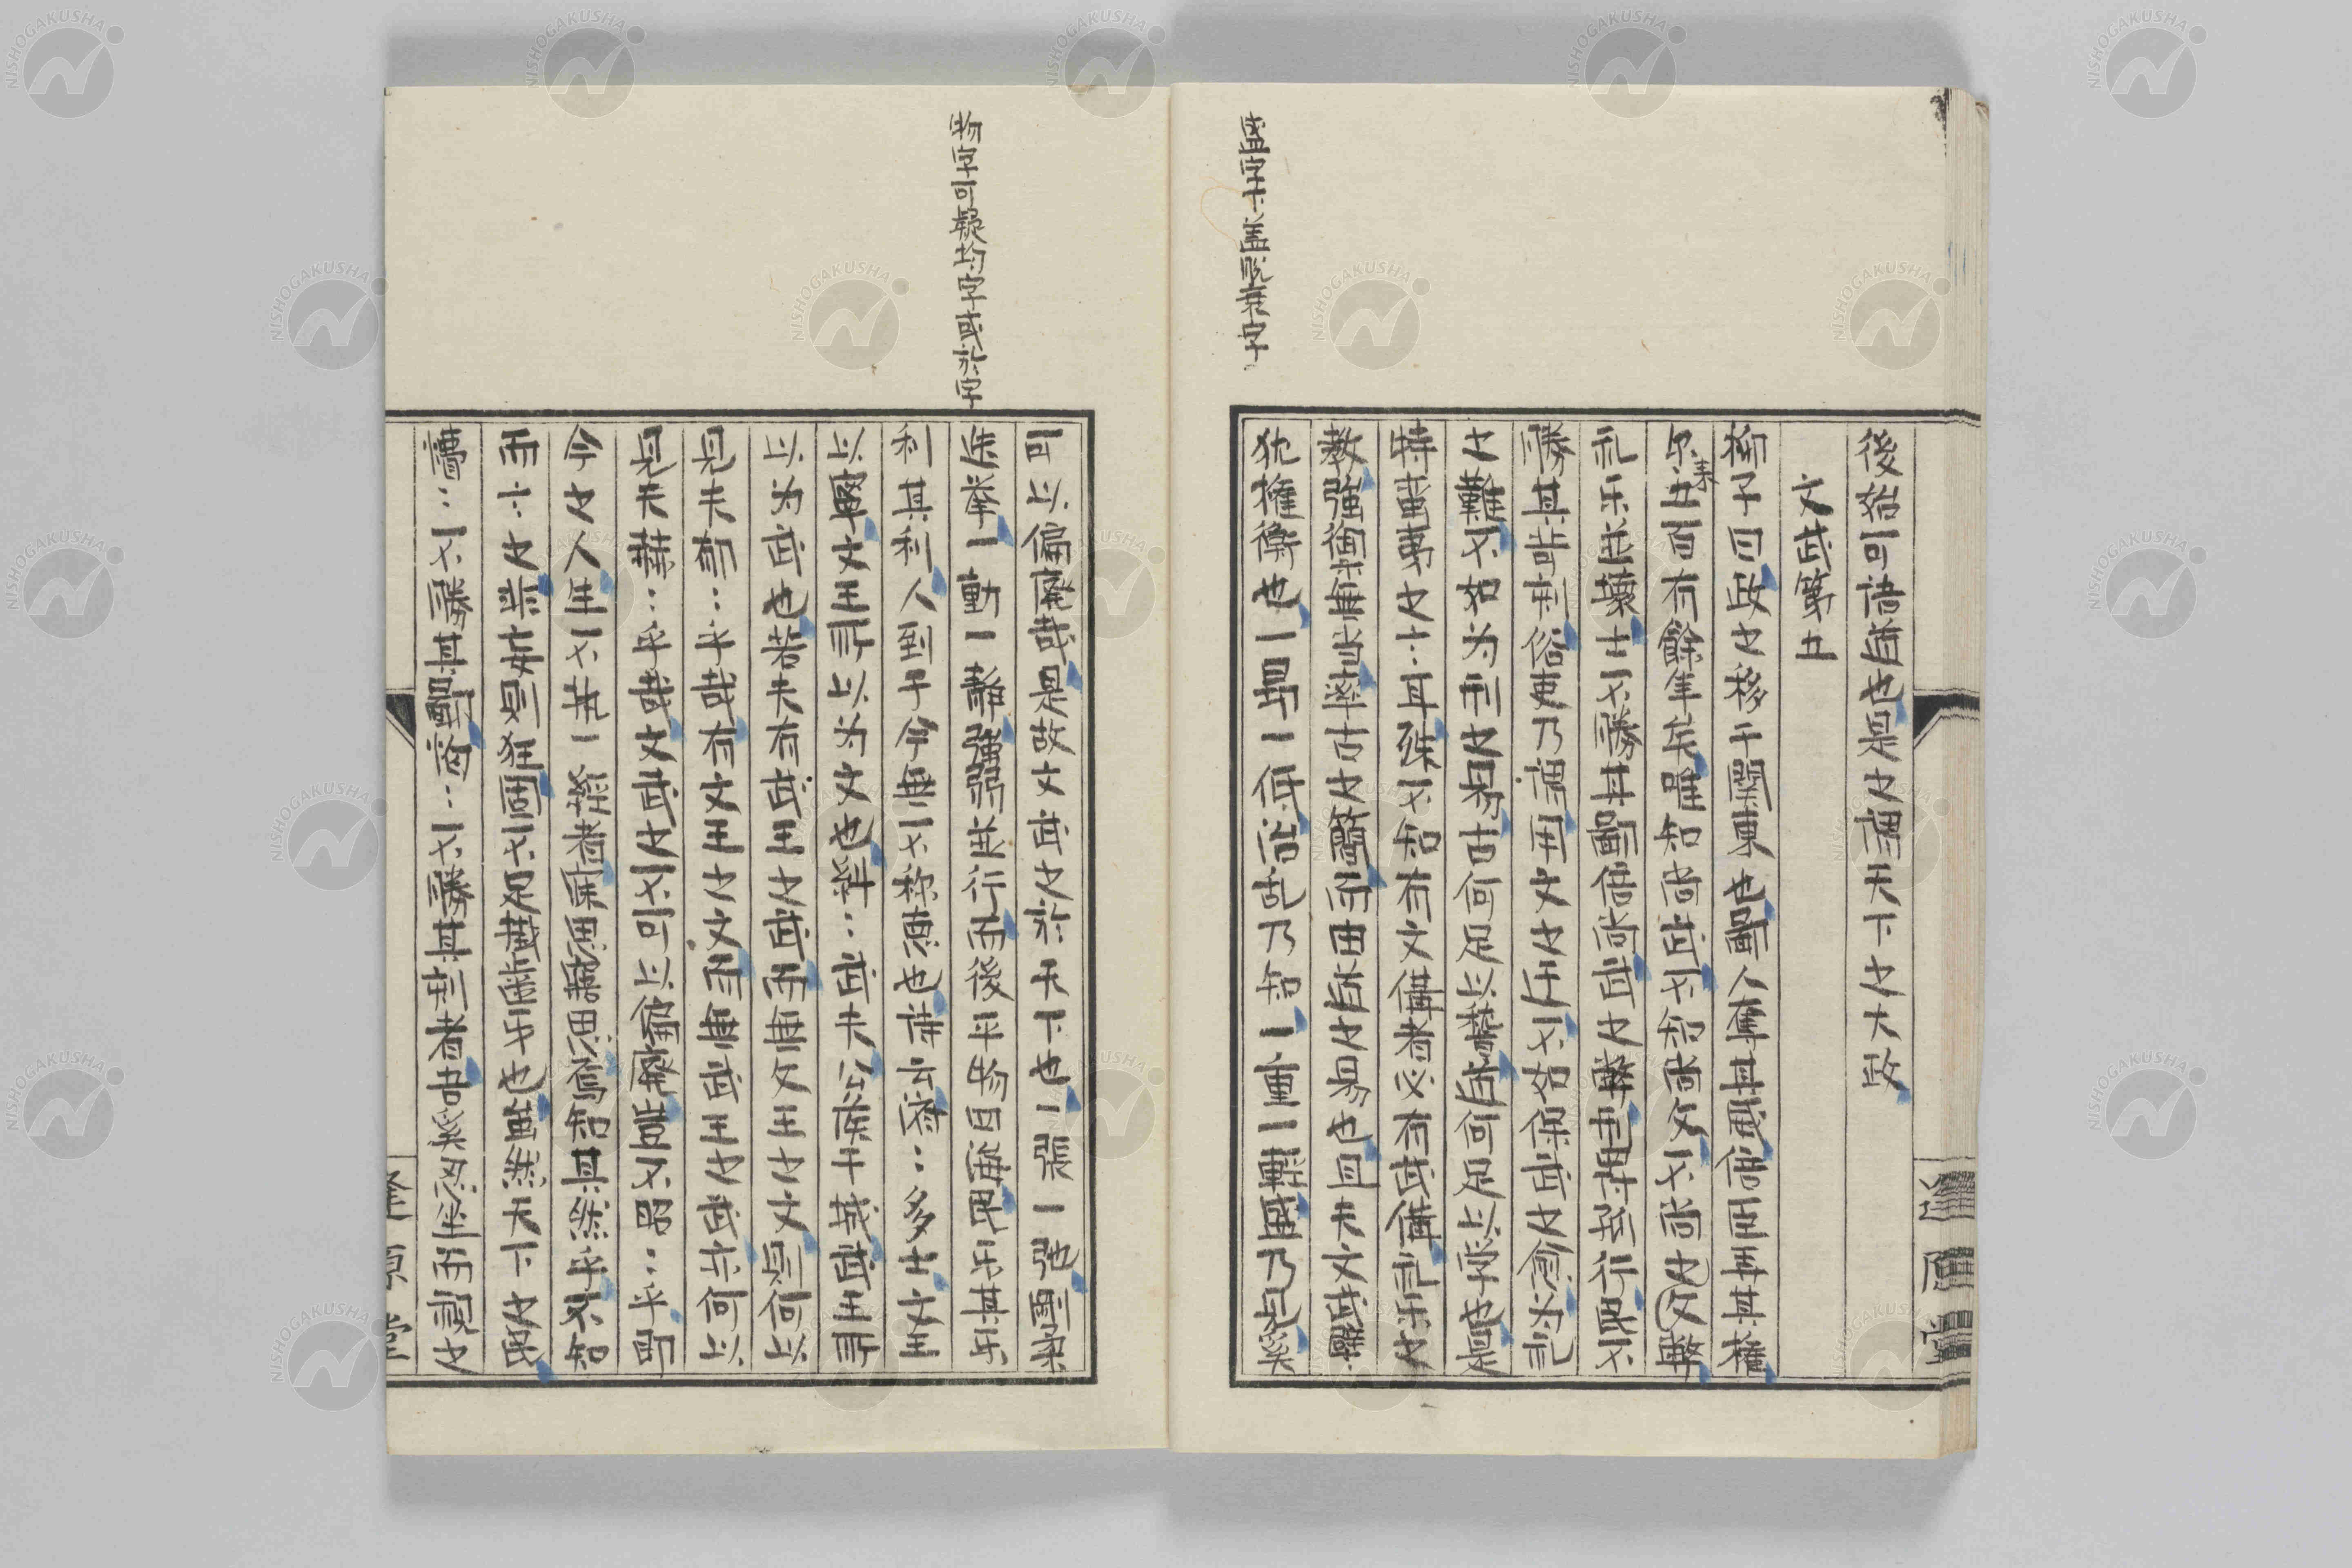 盛字下盖脱衰字
後始可語道也是之謂天下之大政
文武第五
柳子曰政之移于関東也鄙人奮其威倍臣弄其権
尓来五百有餘年矣唯知尚武不知尚文不尚文之弊
礼乐並壊士不勝其鄙倍尚武之弊
勝其苛刑俗吏乃謂用文之迂不如保武之愈为礼
之難不如为刑之易古何足以稽道何足以学也是
特蛮夷之言耳殊不知有文備者必有武備礼乐之
教強禦無当率古之簡而由道之易也且夫文武
犹権衡也一昂一低治乱乃知一重一軽盛乃見奚
物字可疑均字或於字
可以偏廃哉是故文武之於天下也一張一弛剛柔
迭挙一動一静強弱並行而後平物四海民乐其乐
利其利人到于今無不称恵也詩云済〻多士文王
以寧文王所以为文也糾〻武夫公侯干城武王所
以为武也若夫有武王之武而無文王之文則何以
見夫郁〻乎哉有文王之文而無武王之武亦何以
見夫赫〻乎哉文武之不可以偏廃豈不昭〻乎即
今之人生不執一経者寐思寤思焉知其然乎不知
而言之非妄則狂固不足掛歯牙也雖然天下之民
懵〻不勝其鄙 〻不勝其刑者吾奚忍坐而視之